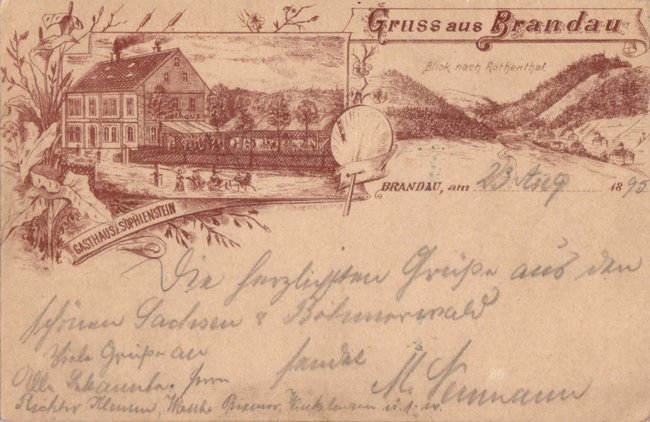 Gruss aus Brandau
Blick nach Rothenthal
GASTHAUS z. SOPHIENSTEIN
BRANDAU, am 23 Aug 1895
Die herzlichsten Grüße aus den
schönen Sachsen & Böhmerwald
sendet
M. Neumann
Viele Grüße an
Alle Herrn
Richter Klemm, Winkelmann u.s.w.